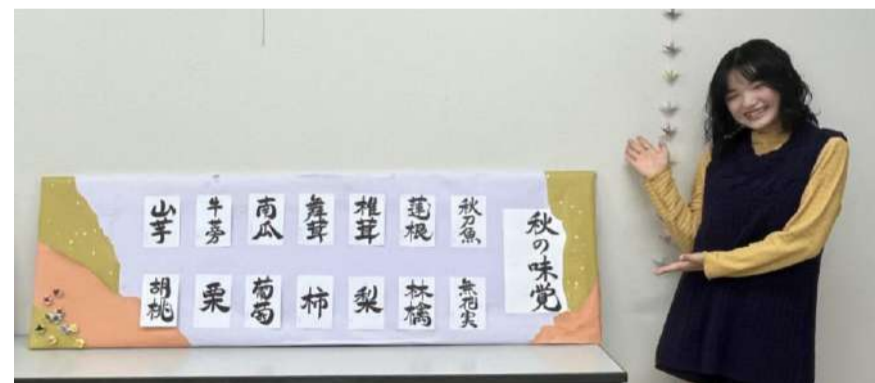 秋の味覚
秋刀魚
蓮根
椎茸
舞茸
南瓜
牛蒡
山芋
無花実
林檎
梨
柿
葡萄
栗
胡桃